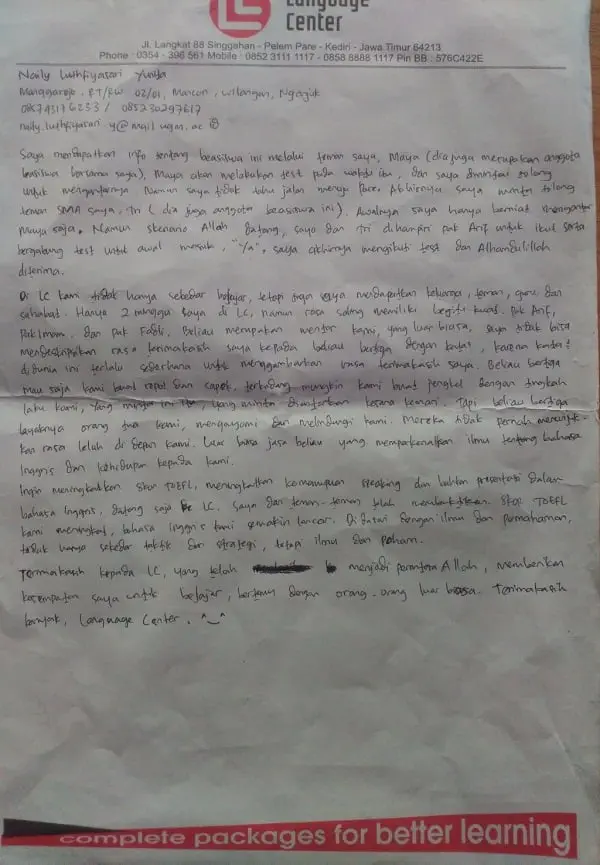 LC Language
Center
Jl. Langkat 88 Singgahan - Pelem Pare - Kediri - Jawa Timur 64213
Phone : 0354 - 396 561 Mobile : 0852 3111 1117 - 0858 8888 1117 Pin BB : 576C422E
Naily Luthfiyasari Yunita
Manggarejo, RT/RW 02/01, Mancon, Wilangan, Nganjuk
085230297617
naily.luthfiyasari.y@mail.ugm.ac.id
Saya mendapatkan info tentang beasiswa ini melalui teman saya, Maya (dia juga merupakan anggota
beasiswa bersama saya), Maya akan melakukan test pada waktu itu, dan saya dimintai tolong
untuk mengantarnya namun saya tidak tahu jalan menuju Pare. Akhirnya saya minta tolong
teman SMA saya, Tri (dia juga anggota beasiswa ini). Awalnya saya hanya berniat mengantar
Maya saja. Namun skenario Allah datang, saya dan Tri dihampiri pak Arif untuk ikut serta
bergabung test untuk awal masuk, "Ya", saya akhirnya mengikuti test dan Alhamdulillah
diterima.
Di LC kami tidak hanya sebedar belajar, tetapi juga saya mendapatkan keluarga, teman, guru dan
sahabat. Hanya 2 minggu saya di LC, namun rasa saling memiliki begitu kuat. Pak Arif,
Pak Imam, dan Pak Fadli, Beliau merupakan mentor kami, yang luar biasa, saya tidak bisa
mendeskripsikan rasa terimakasih saya kepada beliau bertiga dengan kata², karena kata²
didunia ini terlalu sederhana untuk menggambarkan rasa terimakasih saya. Beliau bertiga
mau saja kami buat repot dan capek, terkadang mungkin kami buat jengkel dengan tingkah
laku kami, yang minta ini itu, yang minta diantarkan kesana kemari. Tapi beliau bertiga
layaknya orang tua kami, mengayomi dan melindungi kami. Mereka tidak pernah menunjuk-
kan rasa lelah di depan kami. Luar biasa jasa beliau yang memperkenalkan ilmu tentang bahasa
Inggris dan kehidupan kepada kami.
Ingin meningkatkan skor TOEFL, meningkatkan kemampuan speaking dan bahkan presentasi dalam
bahasa Inggris, datang saja ke LC. Saya dan teman-teman telah membuktikan. Skor TOEFL
kami meningkat, bahasa Inggris kami semakin lancar. Didasari dengan ilmu dan pemahaman,
tidak hanya sebedar taktik dan strategi, tetapi ilmu dan paham.
Terimakasih kepada LC, yang telah menjadi perantara Allah, memberikan
kesempatan saya untuk belajar, bertemu dengan orang-orang luar biasa. Terimakasih
banyak, Language Center. ^_^
complete packages for better learning